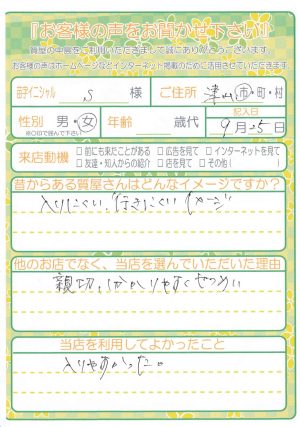 『お客様の声をお聞かせ下さい』
質屋の中島をご利用いただきまして誠にありがとうございます。
お客様の声はホームページなどインターネット掲載のために活用させていただきます。
イニシャル S 様 ご住所 津山 市・町・村
性別 男・女 年齢 歳代 記入日 9月25日
※○印で囲んで下さい
来店動機 □前にも来たことがある □広告を見て □インターネットを見て
□友達・知人からの紹介 □店を見て □その他（
昔からある質屋さんはどんなイメージですか?
入りにくい、行きにくいイメージ
他のお店でなく、当店を選んでいただいた理由
親切、わかりやすく
当店を利用してよかったこと
入りやすかった。